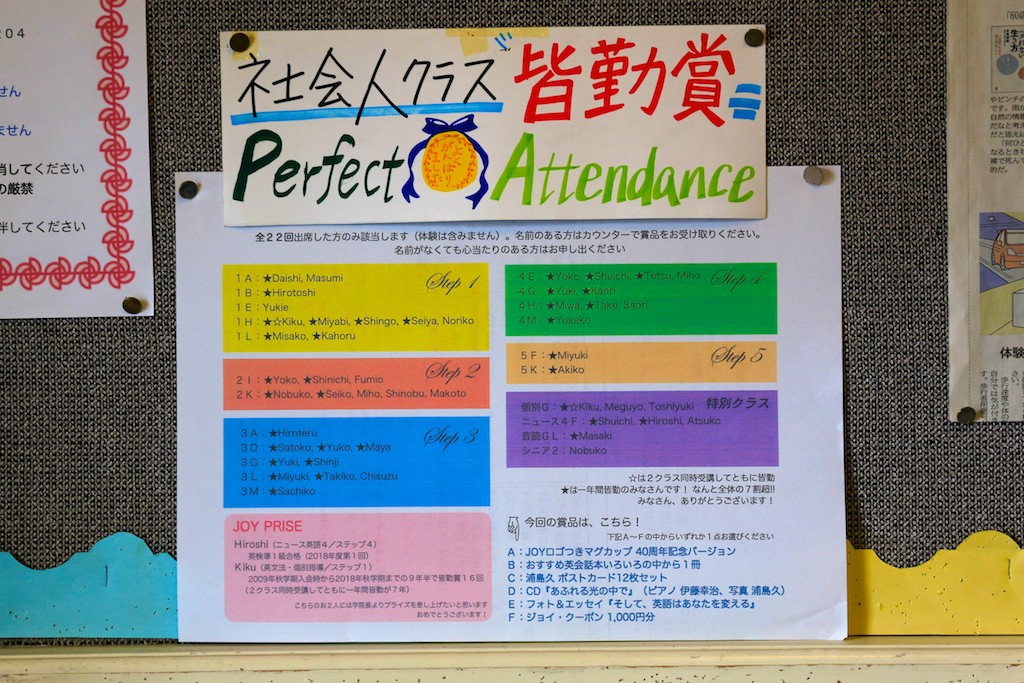 社会人クラス 皆勤賞
Perfect Attendance
全２２回出席した方のみ該当します（体験は含みません）。名前のある方はカウンターで賞品をお受け取りください。
名前がなくても心当たりのある方はお申し出ください
Step 1
１Ａ：★Daishi, Masumi
１Ｂ：★Hirotoshi
１Ｅ：Yukie
１Ｈ：★☆Kiku, ★Miyabi, ★Shingo, ★Seiya, Noriko
１Ｌ：★Misako, ★Kahoru
Step 2
２Ｉ：★Yoko, ★Shinichi, Fumio
２Ｋ：★Nobuko, ★Seiko, Miho, Shinobu, Makoto
Step 3
３Ａ：★Hiroteru
３Ｄ：★Satoko, ★Yuko, ★Maya
３Ｇ：★Yuki, ★Shinji
３Ｌ：★Miyuki, ★Takiko, Chisuzu
３Ｍ：★Sachiko
JOY PRISE
Hiroshi（ニュース英語４／ステップ４）
英検準１級合格（2018年度第１回）
Kiku（英文法・個別指導／ステップ１）
2009年秋学期入会時から2018年秋学期までの９年半で皆勤賞１６回
（２クラス同時受講してともに一年間皆勤が７年）
こちらのお２人には学院長よりプライズを差し上げたいと思います
おめでとうございます！
Step 4
４Ｅ：★Yoko, ★Shuichi, ★Tetsu, Miho
４Ｇ：★Yuki, ★Kaori
４Ｈ：★Miwa, ★Take, Saori
４Ｍ：★Yukako
Step 5
５Ｆ：★Miyuki
５Ｋ：★Akiko
特別クラス
個別Ｇ：★☆Kiku, Meguyo, Toshiyuki
ニュース４Ｆ：★Shuichi, ★Hiroshi, Atsuko
音読ＧＬ：★Masaki
シニア２：Nobuko
☆は２クラス同時受講してともに皆勤
★は一年間皆勤のみなさんです！ なんと全体の７割超!!
みなさん、ありがとうございます！
今回の賞品は、こちら！
下記Ａ～Ｆの中からいずれか１点お選びください
Ａ：JOYロゴつきマグカップ 40周年記念バージョン
Ｂ：おすすめ英会話本いろいろの中から１冊
Ｃ：浦島久 ポストカード12枚セット
Ｄ：CD『あふれる光の中で』（ピアノ 伊藤幸治、写真 浦島久）
Ｅ：フォト＆エッセイ『そして、英語はあなたを変える』
Ｆ：ジョイ・クーポン 1,000円分
２０４
せん
ません
消してください
の厳禁
半してください
体験